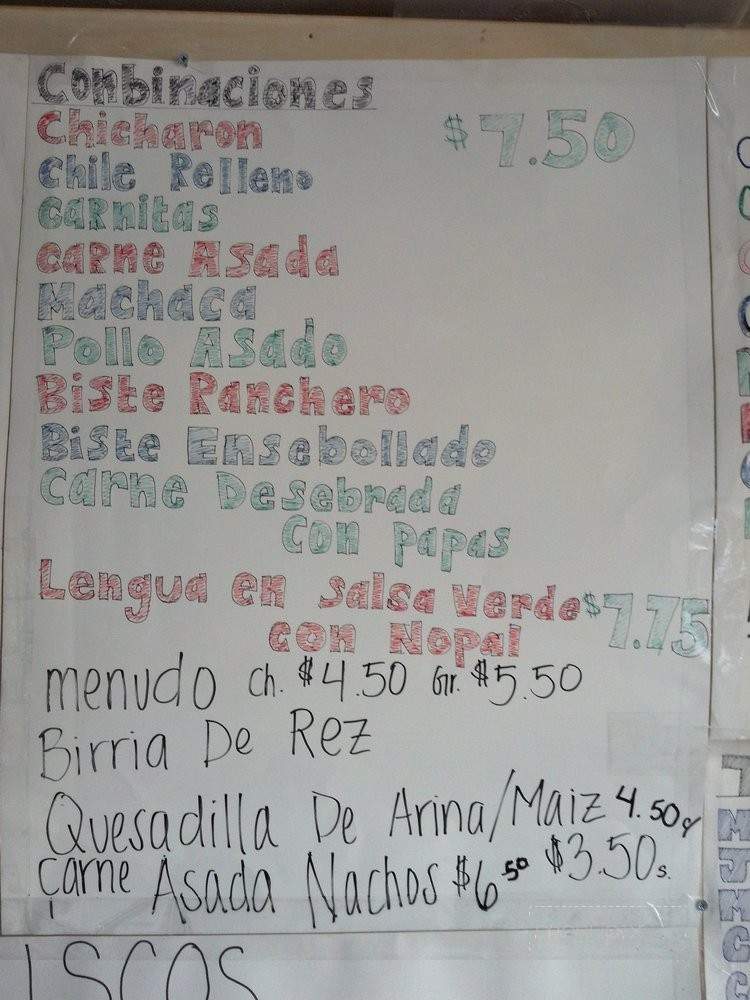 Combinaciones
Chicharon $7.50
Chile Relleno
Carnitas
Carne Asada
Machaca
Pollo Asado
Biste Ranchero
Biste Ensebollado
Carne Desebrada
con papas
Lengua en salsa Verde $7.75
con Nopal
menudo ch. $4.50 Gr. $5.50
Birria De Rez
Quesadilla De Arina/Maiz 4.50
Carne Asada Nachos $6.50 $3.50s.
ISCOS